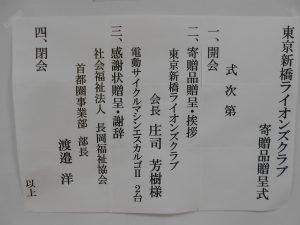 東京新橋ライオンズクラブ
寄贈品贈呈式
式次第
一、開会
二、寄贈品贈呈・挨拶
東京新橋ライオンズクラブ
会長 庄司 芳樹様
電動サイクルマシンエスカルゴⅡ 2台
三、感謝状贈呈・謝辞
社会福祉法人 長岡福祉協会
首都圏事業部 部長
渡邉 洋
四、閉会
以上